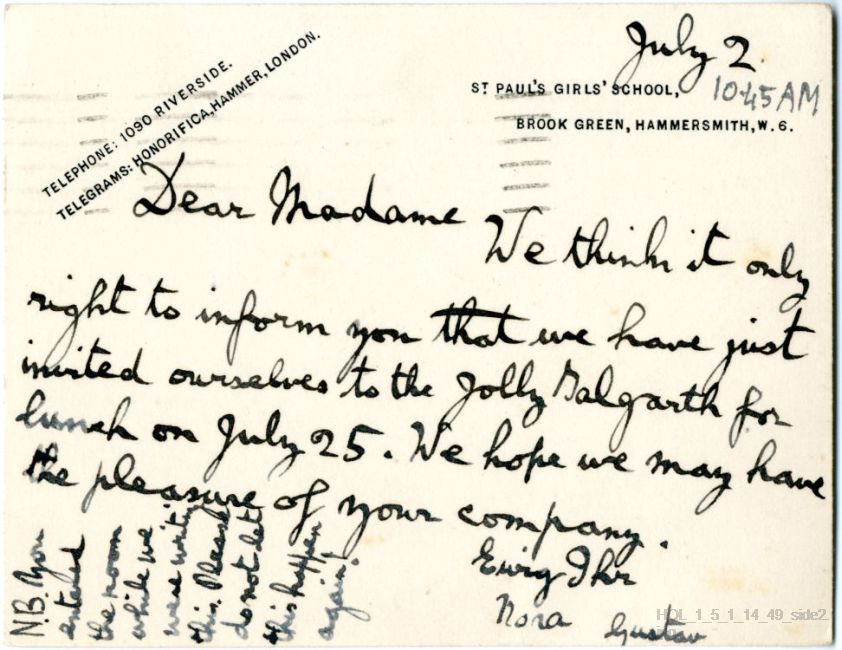 July 2
10.45 AM
ST PAUL'S GIRLS' SCHOOL,
BROOK GREEN, HAMMERSMITH, W.6.
TELEPHONE: 1090 RIVERSIDE.
TELEGRAMS: HONORIFICA, HAMMER, LONDON.
Dear Madame
We think it only
right to inform you that we have just
invited ourselves to the Jolly Galgarth for
lunch on July 25. We hope we may have
the pleasure of your company.
Ewig Ihr
Nora
Gustav
N.B. You
entered
the room
while we
were writing
this. Please
do not let
this happen
again!
HOL_1_5_1_14_49_side2